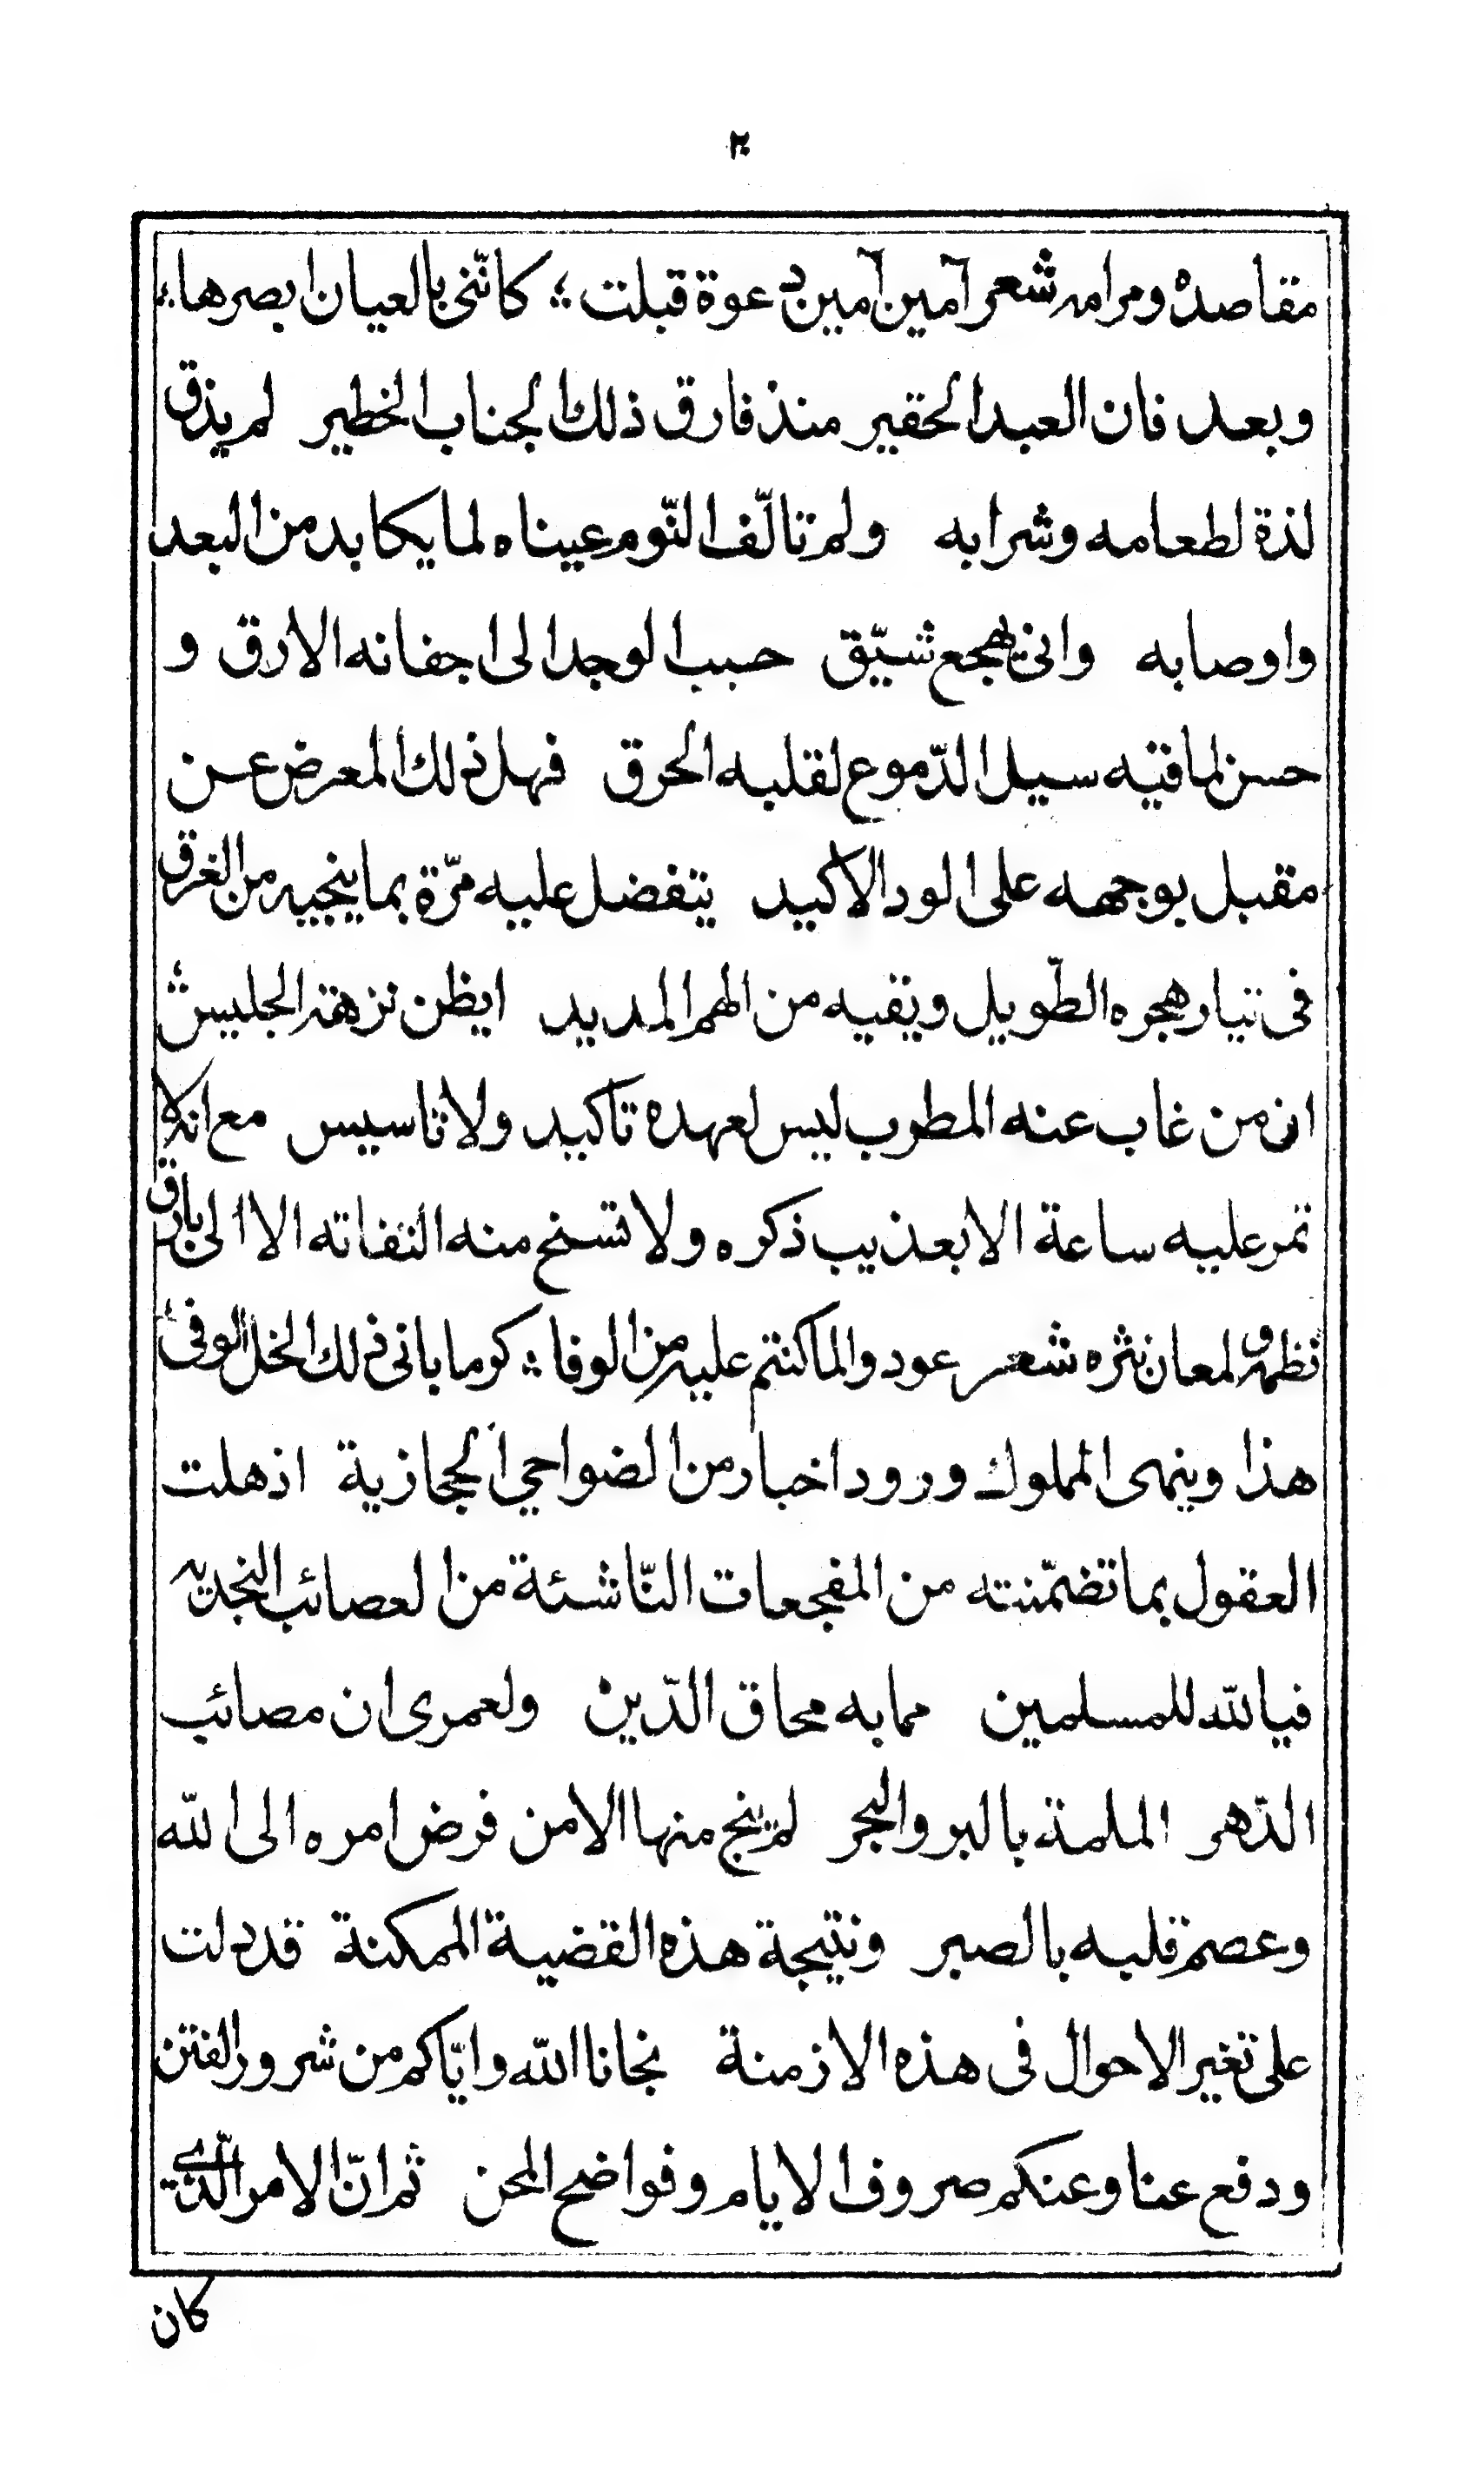 ٢٠
مقاصده ومرامه شعر آمين آمين دعوة قبلت ؛ كانّنى بالعيان ابصرها ؛
وبعد فان العبد الحقير منذ فارق ذلك الجناب الخطير لم يذق
لذة لطعامه وشرابه ولم تالّف النّوم عيناه لما يكابد من البعد
واوصابه وانى يهجع شيّق حبب الوجد الى اجفانه الارق و
حسن لماقيه سيل الدّموع لقلبه الحرق فهل ذلك المعرض عن
مقبل بوجهه على الود الاكيد يتفضل عليه مرّة بما ينجيه من الغرق
فى تيار هجره الطّويل ويقيه من الهم المديد ايظن نزهة الجليس
ان من غاب عنه المطرب ليس لعهده تاكيد ولا تاسيس مع انه لا
تمر عليه ساعة الا بعذيب ذكره ولا تسنح منه التفاته الا الى بارق
نظمه و لمعان نثره شعر عودوا لما كنتم عليه من الوفا ؛ كرما بانى ذلك الخل الوفى
هذا وينهى المملوك ورود اخبار من الضواحي الحجازية اذهلت
العقول بما تضمّنته من المفجعات النّاشئة من العصائب النجديه
فيالله للمسلمين مما به محاق الدّين ولعمرى ان مصائب
الدّهر الملمة بالبر والبحر لم ينج منها الا من فرض امره الى الله
وعصم قلبه بالصبر ونتيجة هذه القضية الممكنة قد دلت
على تغير الاحوال فى هذه الازمنة نجانا الله وايّاكم من شرور الفتن
ودفع عنا وعنكم صروف الايام وفواضح المحن ثم انّ الامر الّذى
كان